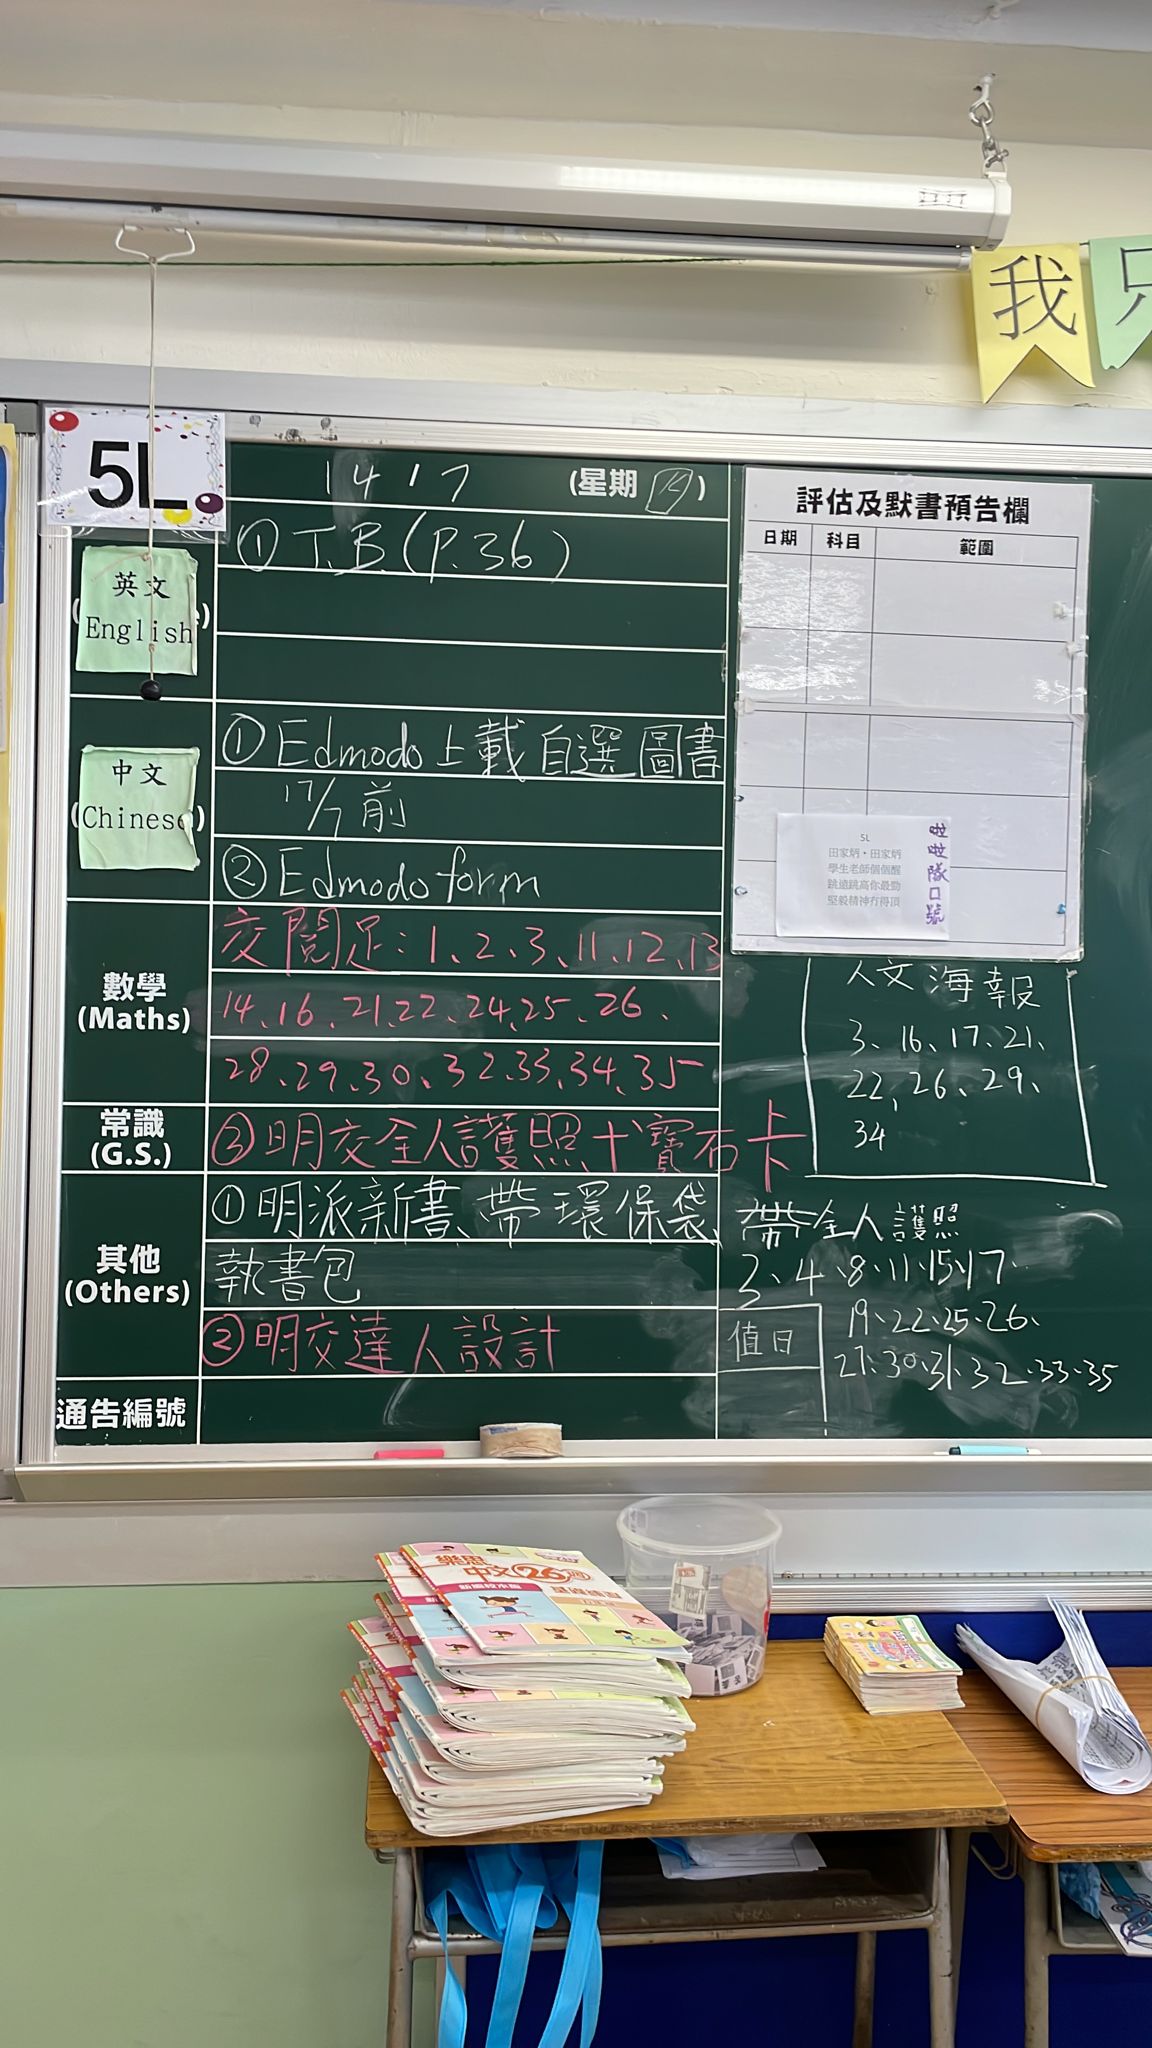 我
5L
14 1 7
(星期
)
評估及默書預告欄
日期
科目
範圍
英文
English
① T.B.(P.36)
中文
(Chinese)
① Edmodo上載自選圖書
17/7前
② Edmodo form
5L
田家炳·田家炳
學生老師個個醒
跳遠跳高你最勁
堅毅精神冇得頂
啦啦隊口號
數學
(Maths)
交閱足:1、2、3、11、12、13
14、16、21、22、24、25、26、
28、29、30、32、33、34、35
人文海報
3、16、17、21、
22、26、29、
34
常識
(G.S.)
②明交全人護照+寶石卡
其他
(Others)
①明派新書、帶環保袋、
執書包
②明交達人設計
帶全人護照
3、4、8、11、15、17、
19、22、25、26、
27、30、31、32、33、35
值日
通告編號
樂思
中文26週
新編校本版
基礎練習